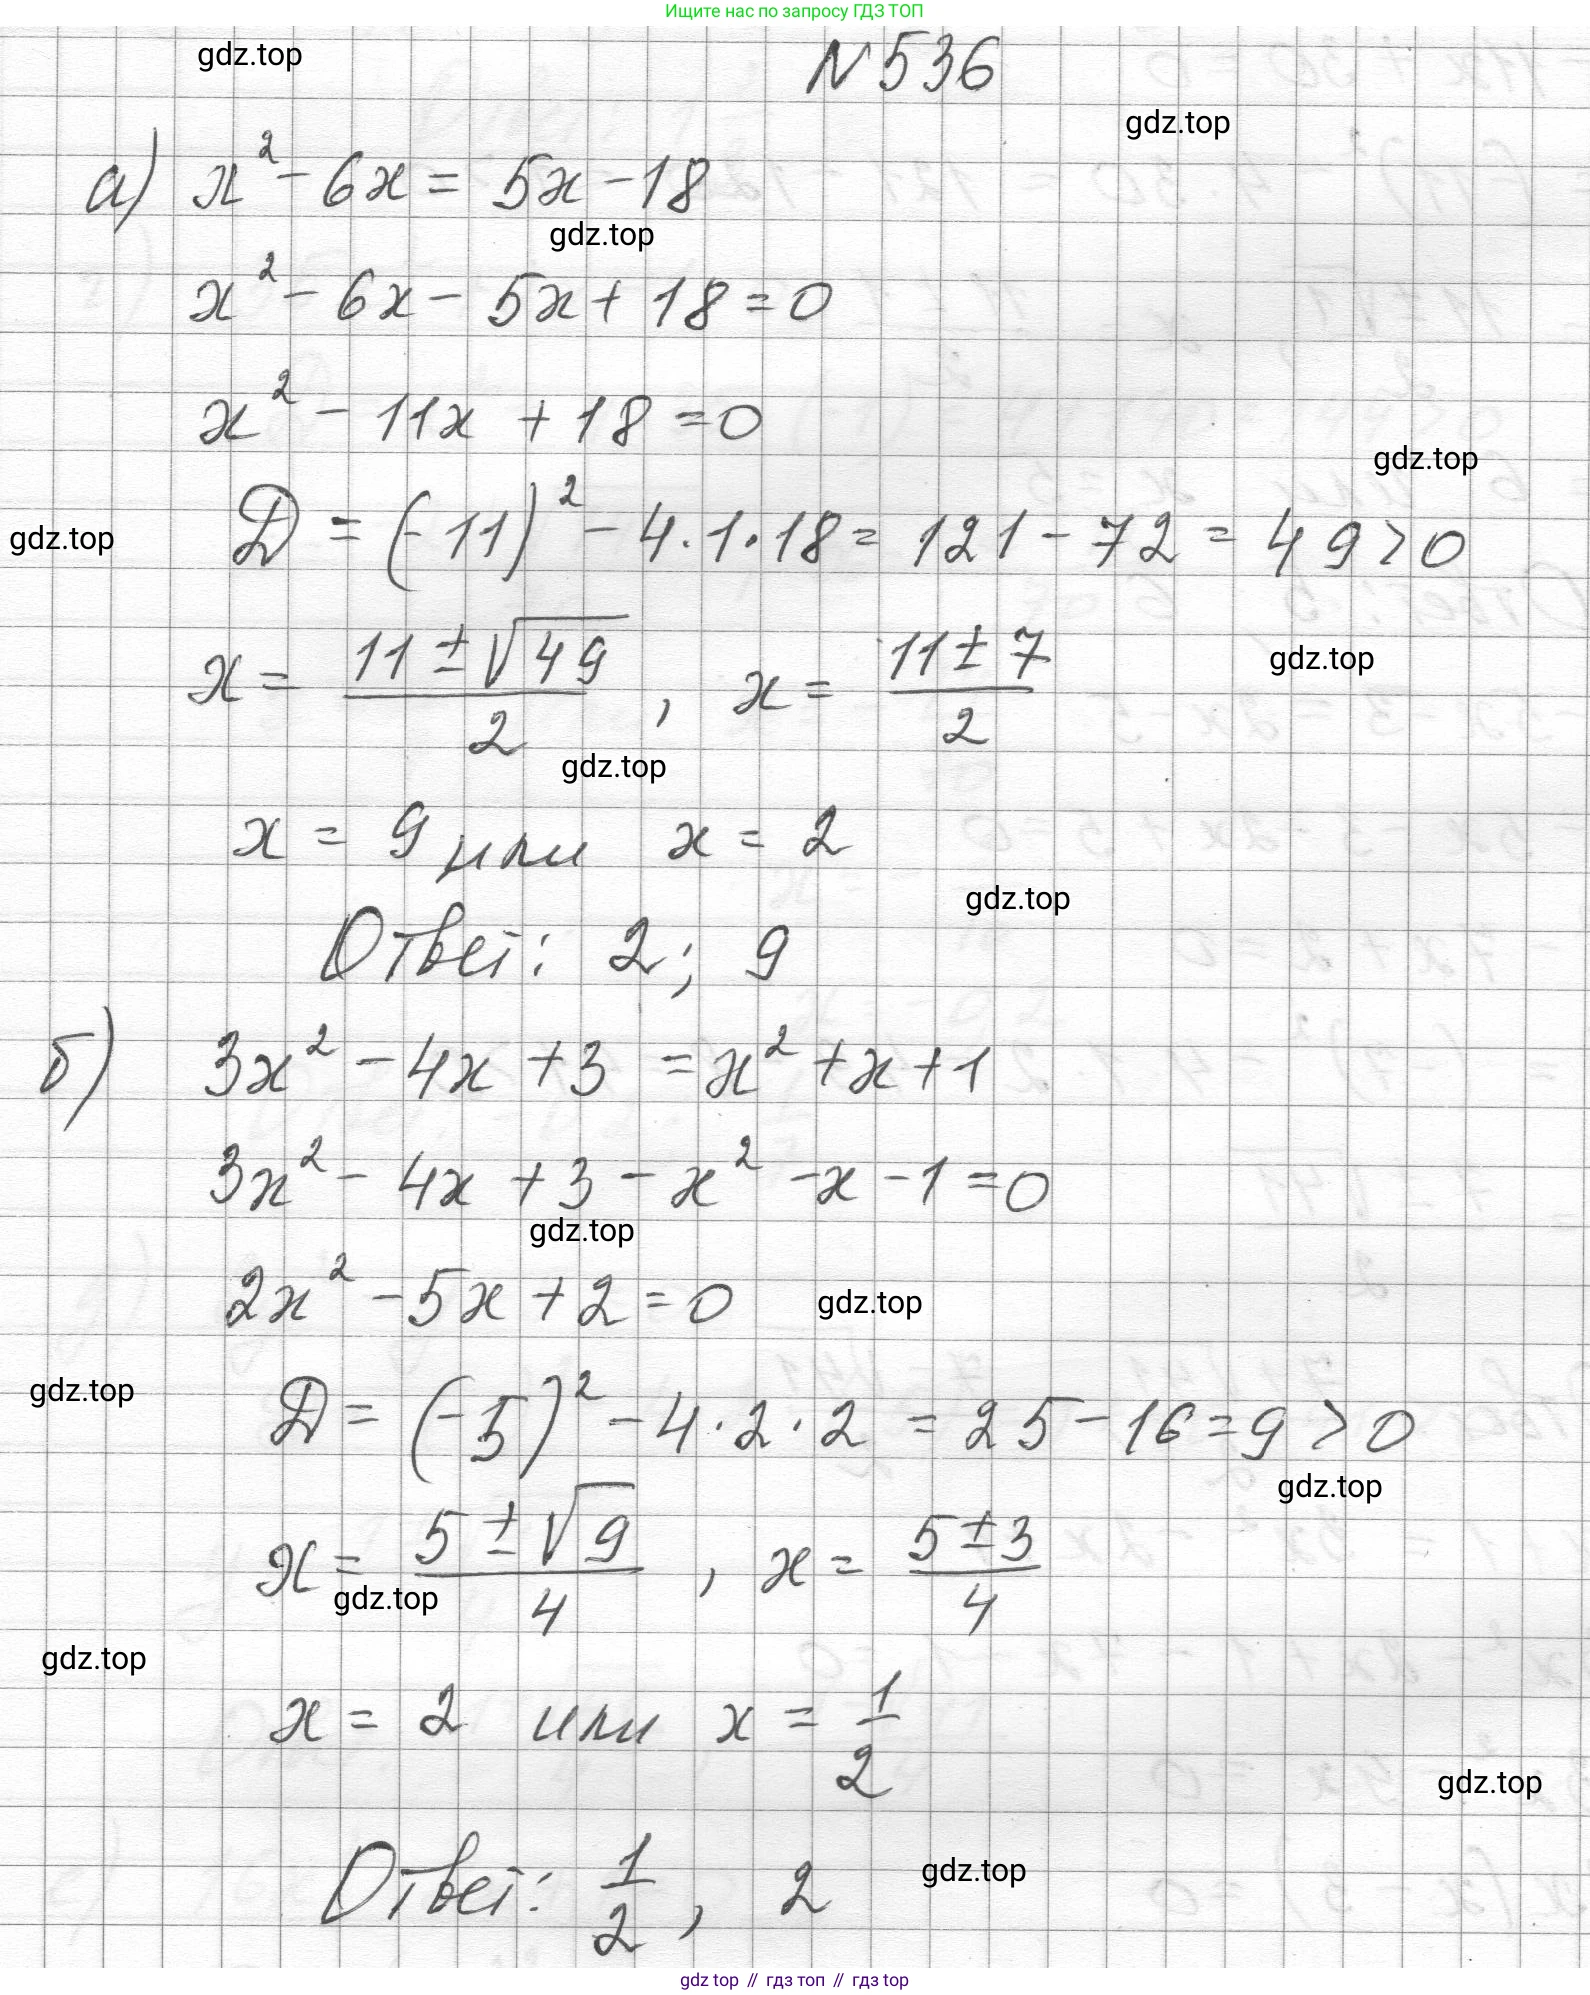 Ищите нас по запросу ГДЗ ТОП
gdz.top
N 536
gdz.top
а) x² - 6x = 5x - 18
gdz.top
x² - 6x - 5x + 18 = 0
x² - 11x + 18 = 0
gdz.top
gdz.top
D = (-11)² - 4·1·18 = 121 - 72 = 49 > 0
x = (11 ± √49)/2 , x = (11 ± 7)/2
gdz.top
gdz.top
x = 9 или x = 2
gdz.top
Ответ: 2; 9
б) 3x² - 4x + 3 = x² + x + 1
3x² - 4x + 3 - x² - x - 1 = 0
gdz.top
2x² - 5x + 2 = 0
gdz.top
gdz.top
D = (-5)² - 4·2·2 = 25 - 16 = 9 > 0
gdz.top
x = (5 ± √9)/4 , x = (5 ± 3)/4
gdz.top
gdz.top
x = 2 или x = 1/2
gdz.top
Ответ: 1/2, 2
gdz.top
gdz top // гдз топ // гдз top